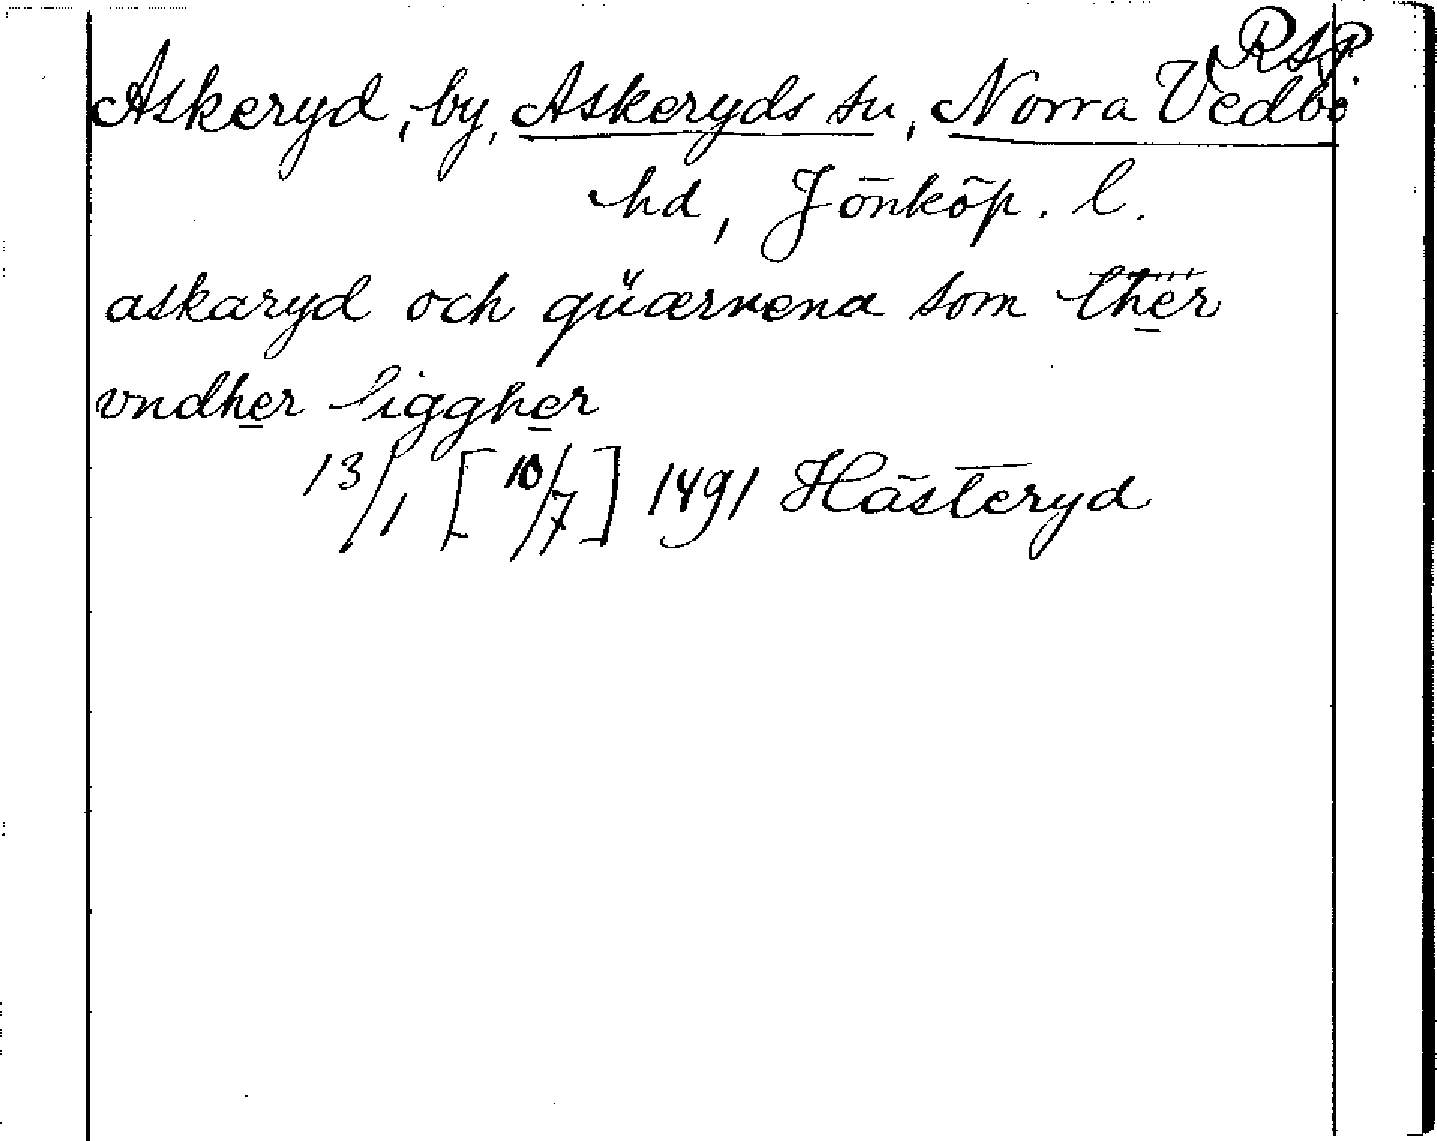 RAP
Askeryd, by, Askeryds sn, Norra Vedbo
hd, Jönköp. l.
askaryd och qüærnena som ther
vndher liggher
13/1 [10/7] 1491 Hästeryd